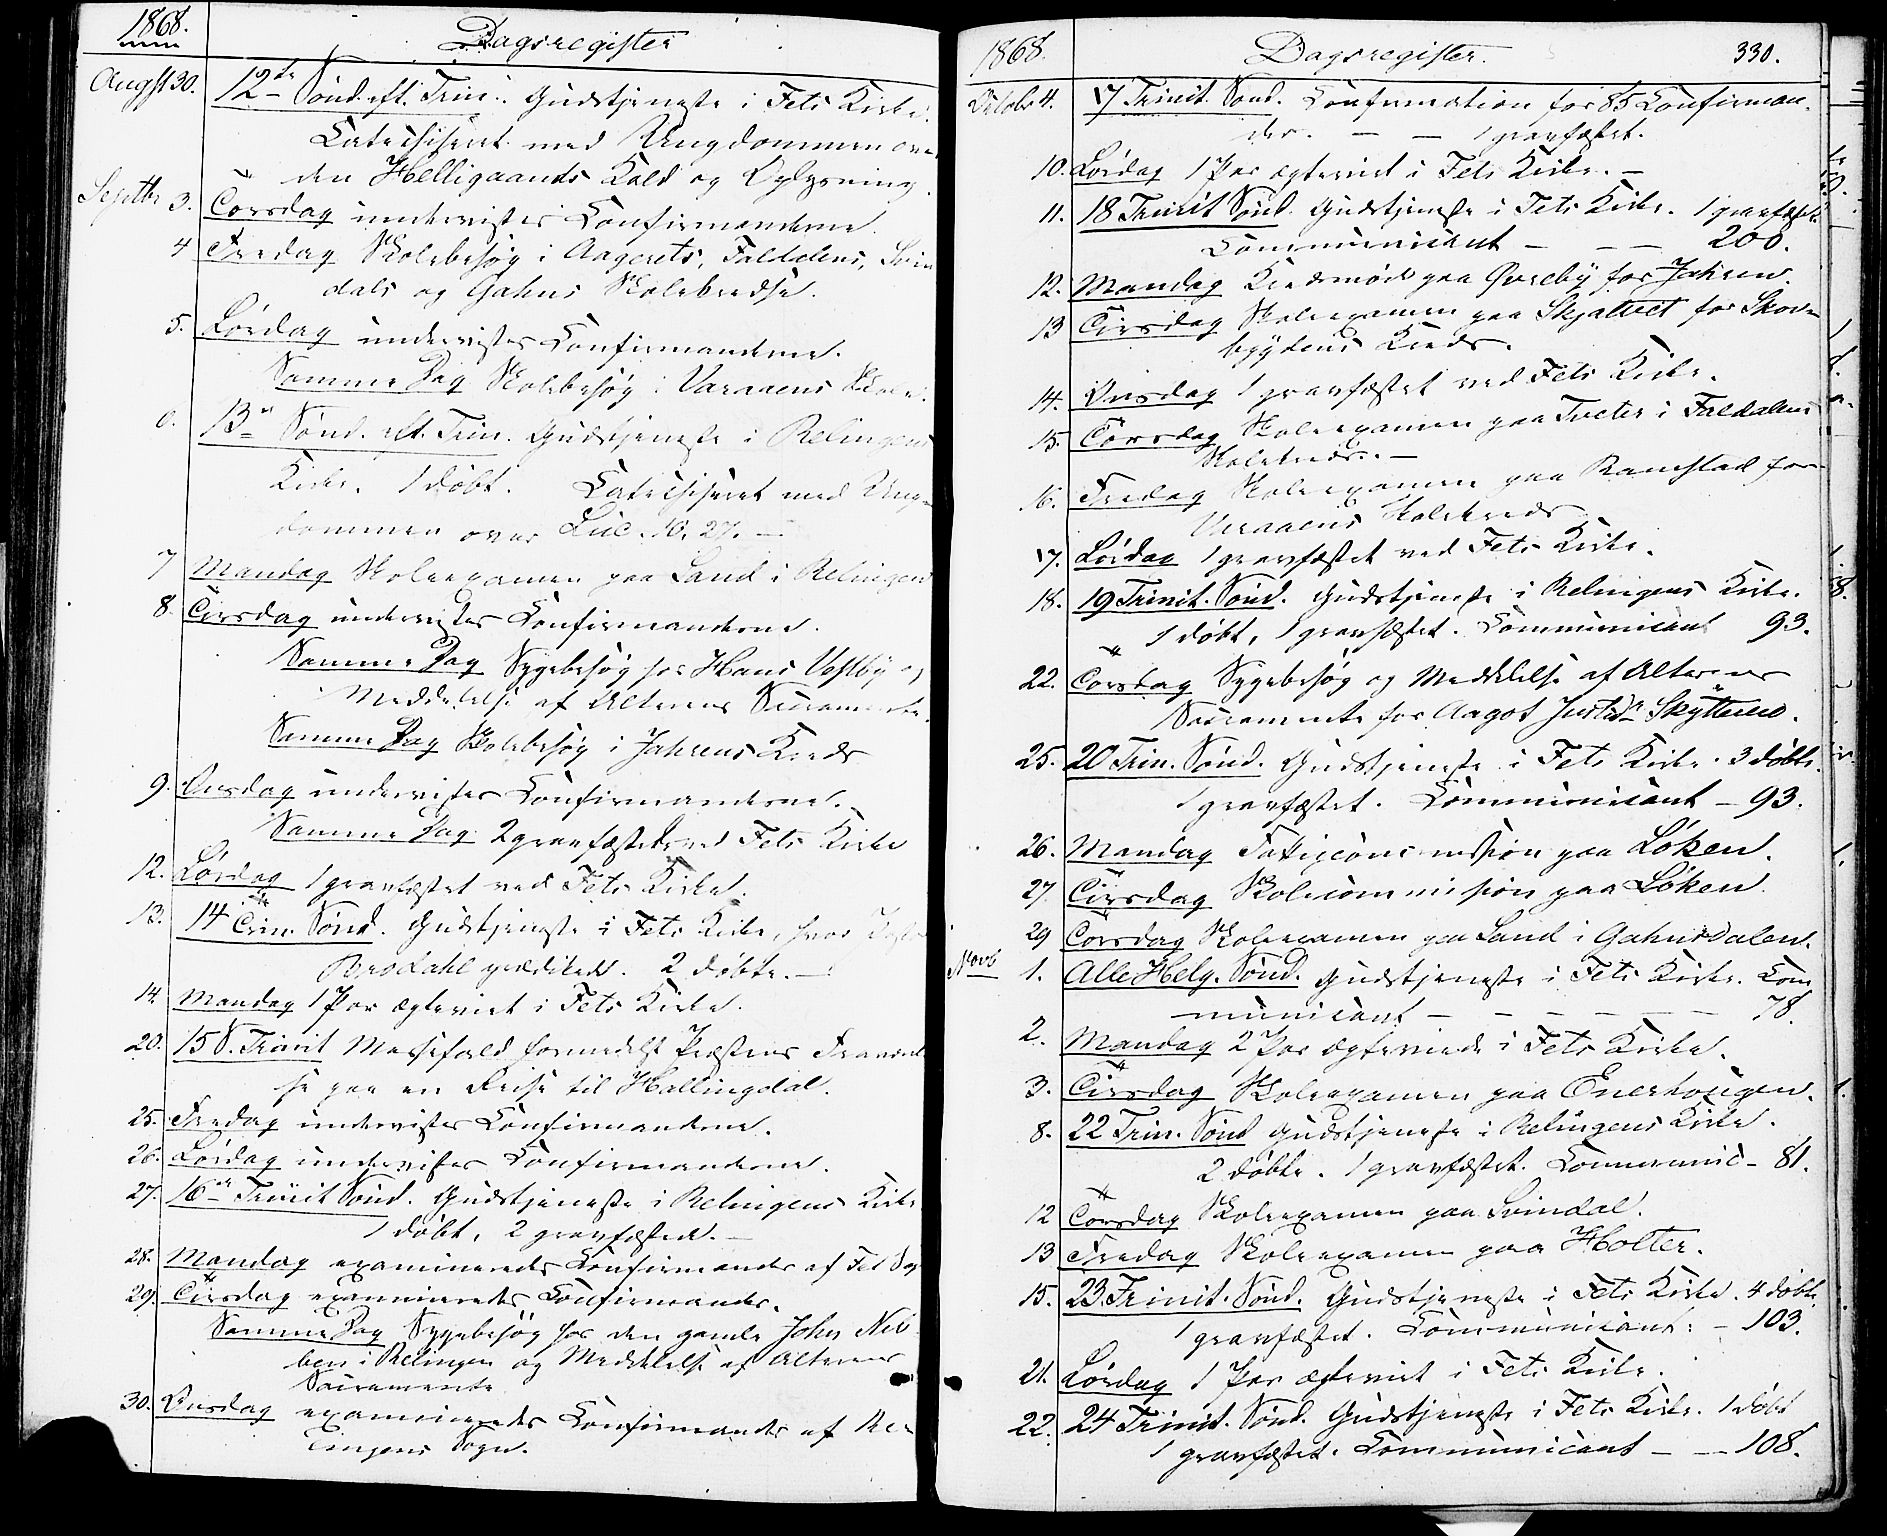 1868.
Dagsregister
Augst 30.
12te Sønd. eft. Trin. Gudstjeneste i Fets Kirke.
Catechiseret med Ungdommen over
den Helligaands Kald og Oplysning.
Septbr 3. Torsdag undervistes Confirmanderne.
4 Fredag Skolebesøg i Aagerets, Faldalens, Svin
dals og Gahns Skolekredse.
5. Lørdag undervistes Confirmanderne.
Samme Dag Skolebesøg i Varaaens Skole.
6. 13de Sønd. eft. Trin. Gudstjeneste i Relingens
Kirke. 1 døbt. Catechiseret med Ung-
dommen over Luc. 10, 27. —
7 Mandag Skoleexamen paa Sand i Relingen
8. Tirsdag undervistes Confirmanderne.
Samme Dag Sygebesøg hos Hans Vestby og
Meddelelse af Alterens Sacramente.
Samme Dag Skolebesøg i Jahrens Kreds
9. Onsdag undervistes Confirmanderne.
Samme Dag 2 gravfæstede ved Fets Kirke
12. Lørdag 1 gravfæstet ved Fets Kirke.
13. 14 Trin. Sønd. Gudstjeneste i Fets Kirke, hvor
Brodahl prædikede. 2 døbte. —
14. Mandag 1 Par ægteviet i Fets Kirke.
20. 15 S. Trinit Messefald formedelst Præstens Fraværel
se paa en Reise til Hallingdal.
25. Fredag undervistes Confirmanderne.
26. Lørdag undervistes Confirmanderne.
27. 16de Trinit Sønd. Gudstjeneste i Relingens Kirke
1 døbt, 2 gravfæstede. —
28. Mandag examineredes Confirmander af Fet Sogn
29. Tirsdag examineredes Confirmander.
Samme Dag Sygebesøg hos den gamle John Neb
ben i Relingen og Meddelelse af Alterens
Sacramente
30. Onsdag examineredes Confirmander af Re-
lingens Sogn.
1868.
Dagsregister.
330.
Octobr 4. 17 Trinit. Sønd. Confirmation for 85 Confirman-
der. — — 1 gravfæstet.
10. Lørdag 1 Par ægteviet i Fets Kirke. —
11. 18 Trinit Sønd. Gudstjeneste i Fets Kirke. 1 gravfæstet
Communicant — — — 200.
12. Mandag Kredsmøde paa Øvreby for Jahren.
13 Tirsdag Skoleexamen paa Skjatvet for Skov-
bygdens Kreds.
14. Onsdag 1 gravfæstet ved Fets Kirke.
15. Torsdag Skoleexamen paa Tveter i Faldalens
Skolekreds. —
16. Fredag Skoleexamen paa Ramstad for
Varaaens Skolekreds
17. Lørdag 1 gravfæstet ved Fets Kirke.
18. 19 Trinit. Sønd. Gudstjeneste i Relingens Kirke.
1 døbt, 1 gravfæstet. Communicant 93.
22. Torsdag Sygebesøg og Meddelelse af Alterens
Sacramente for Aagot Justsdr Skytteren.
25. 20 Trin. Sønd. Gudstjeneste i Fets Kirke. 3 døbte.
1 gravfæstet. Communicant — 93.
26. Mandag Fattigcommission paa Løken.
27. Tirsdag Skolecommission paa Løken.
29 Torsdag Skoleexamen paa Sand i Gahnsdalen.
Novb 1. Alle Helg. Sønd. Gudstjeneste i Fets Kirke. Com
municant — — — — — — 78.
2. Mandag 2 Par ægteviede i Fets Kirke.
3. Tirsdag Skoleexamen paa Enerhougen.
8. 22 Trin. Sønd Gudstjeneste i Relingens Kirke.
2 døbte. 1 gravfæstet. Communic — 81.
12 Torsdag Skoleexamen paa Svindal.
13 Fredag Skoleexamen paa Holter.
15. 23. Trinit. Sønd. Gudstjeneste i Fets Kirke. 4 døbte.
1 gravfæstet. Communicant: — 103.
21. Lørdag 1 Par ægteviet i Fets Kirke.
22. 24 Trinit. Sønd. Gudstjeneste i Fets Kirke. 1 døbt
1 gravfæstet. Communicant — — 108.